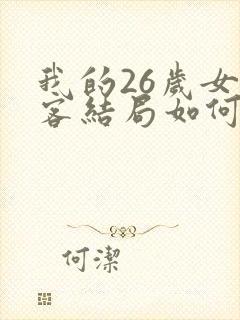 我的26歲女
客結局如何
何潔